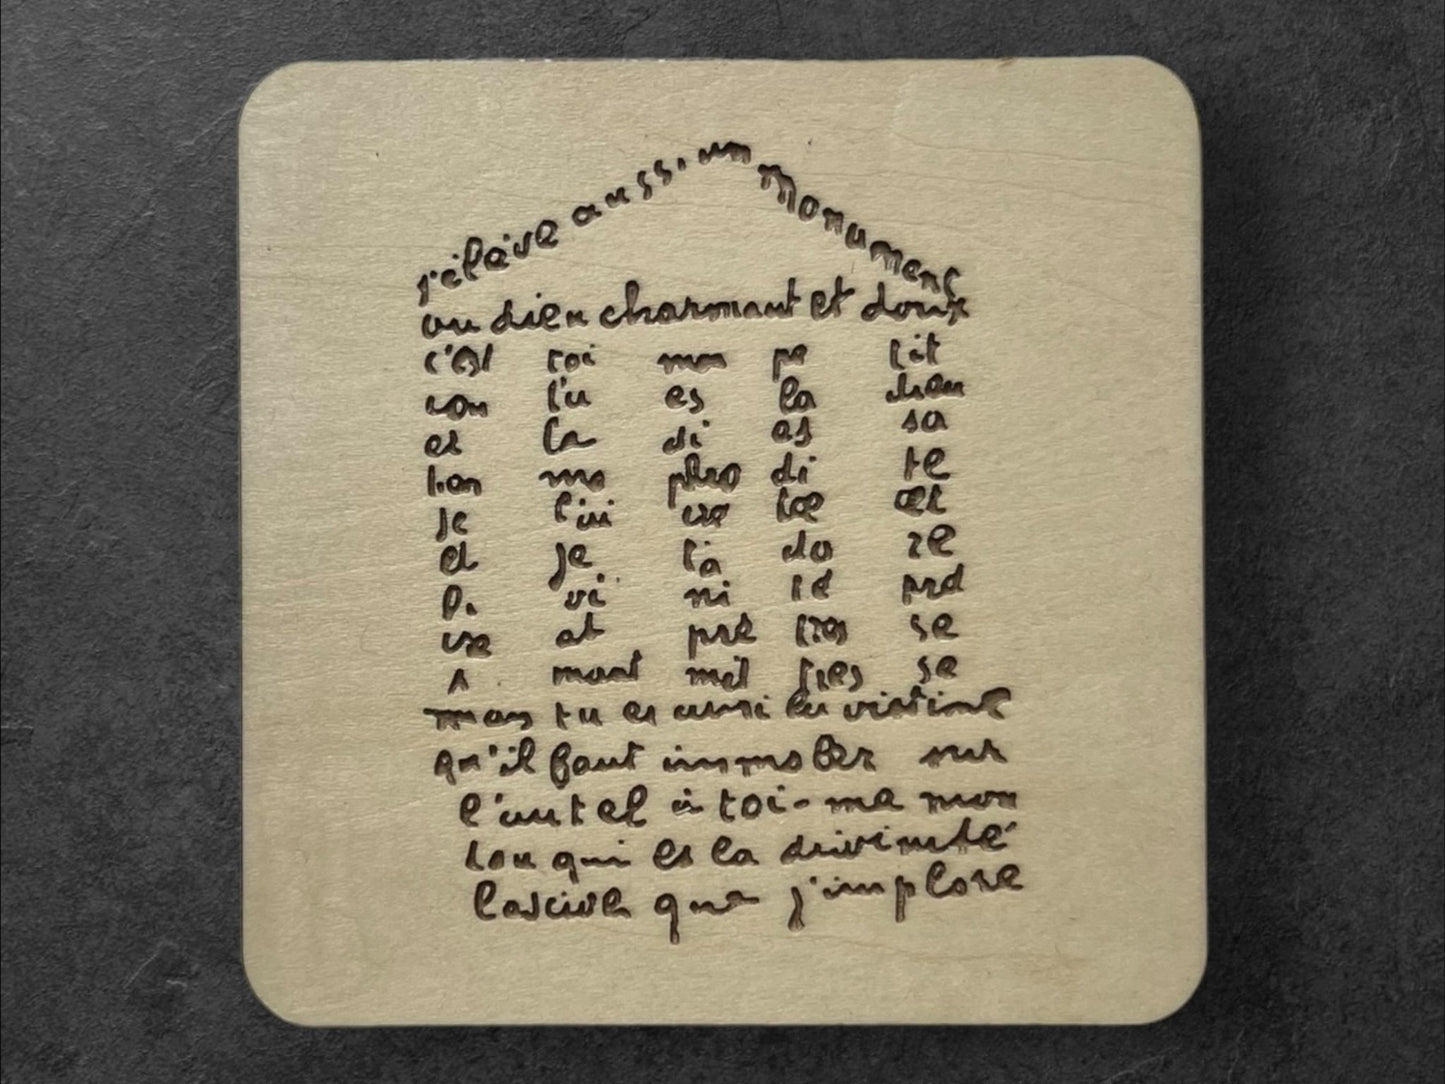 j'élève aussi un monument
au dieu charmant et doux
c'est toi mon pe tit
con tu es la chau
et la di es sa
her ma phro di te
je l'ai
et je t'a do re
Di vi ni té
at prê tres se
A mant mes tres se
mais tu es aussi la victime
qu'il faut immoler sur
l'autel à toi-me mon
cou qui es la divinité
lascive que j'implore